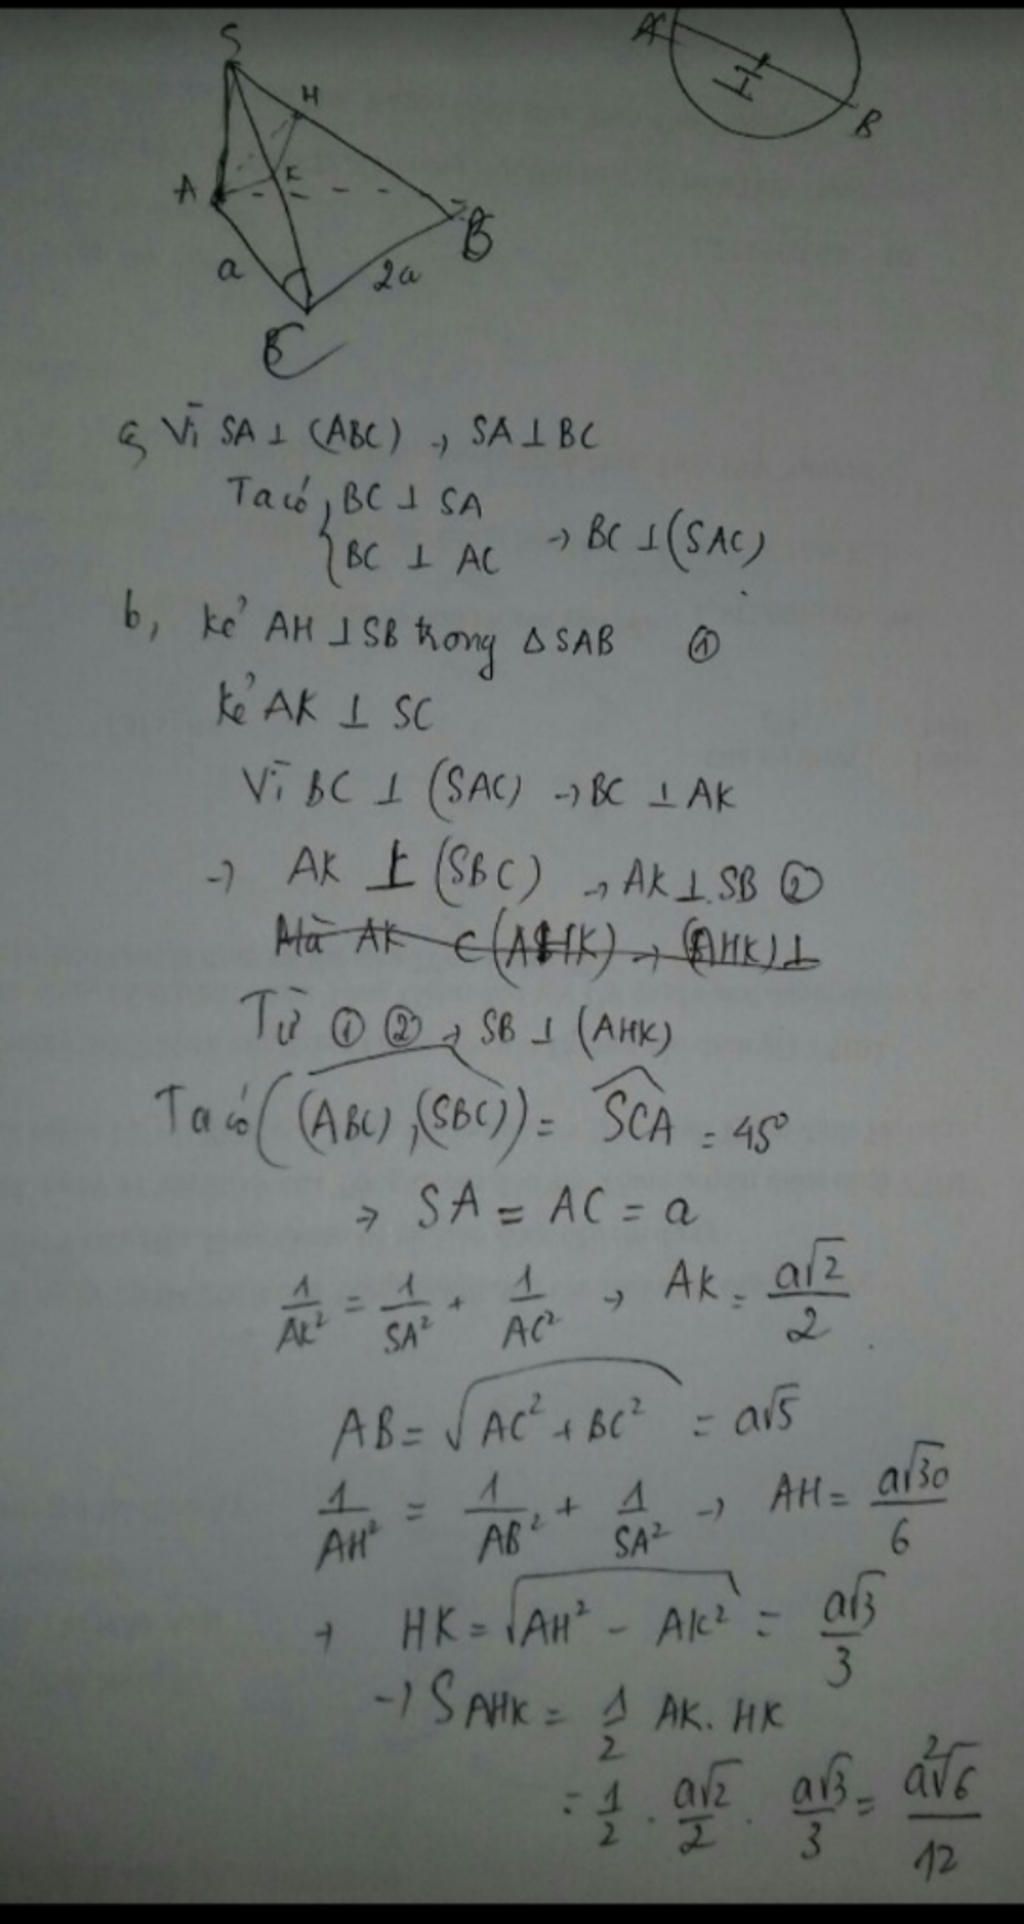 S
H
A
B
A
K
I
B
a
2a
C
a, Vì SA ⊥ (ABC) → SA ⊥ BC
Ta có { BC ⊥ SA
BC ⊥ AC → BC ⊥ (SAC)
b, kẻ AH ⊥ SB trong Δ SAB ①
kẻ AK ⊥ SC
Vì BC ⊥ (SAC) → BC ⊥ AK
→ AK ⊥ (SBC) → AK ⊥ SB ②
Mà AK ⊂ (AHK) → (AHK) ⊥
Từ ① ② → SB ⊥ (AHK)
Ta có ((ABC), (SBC)) = SCA = 45°
→ SA = AC = a
1/AK² = 1/SA² + 1/AC² → AK = a√2/2
AB = √(AC² + BC²) = a√5
1/AH² = 1/AB² + 1/SA² → AH = a√30/6
→ HK = √(AH² - AK²) = a√3/3
→ S AHK = 1/2 AK. HK
= 1/2 . a√2/2 . a√3/3 = a²√6/12